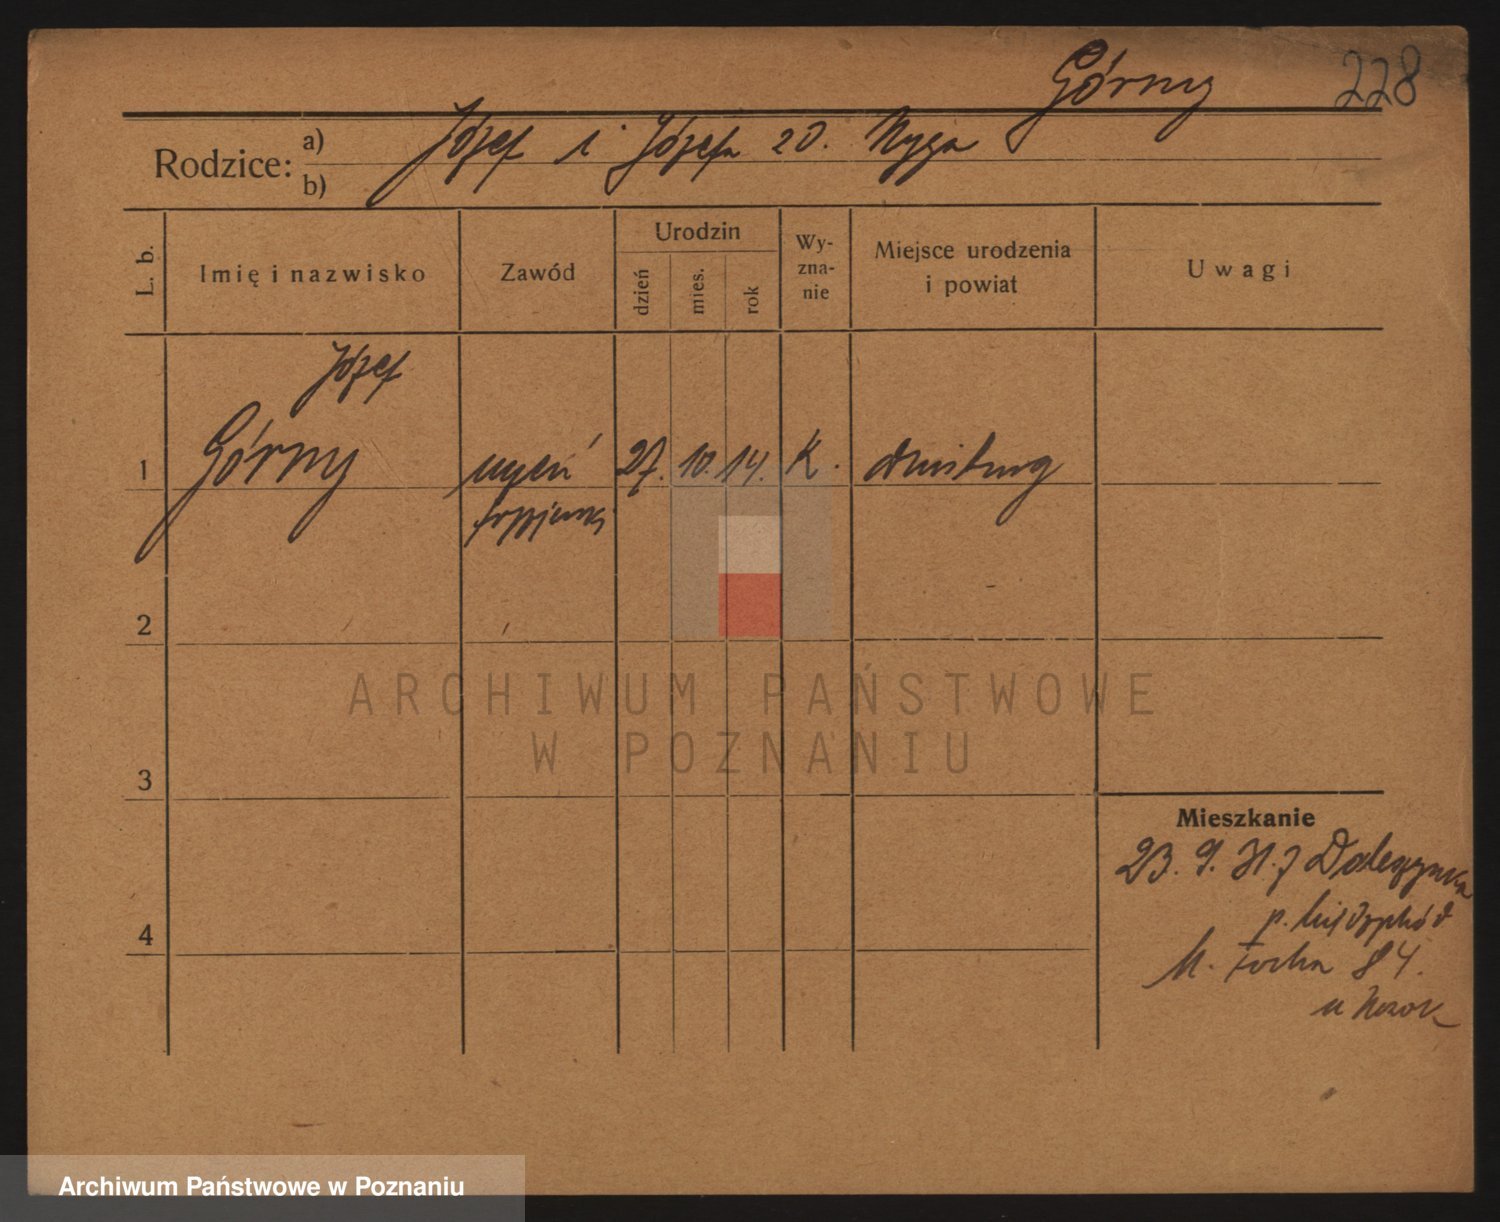 Górny 228
Rodzice: a) Józef i Józefa zd. Nyga
b)
L. b.
Imię i nazwisko
Zawód
Urodzin
dzień
mies.
rok
Wy-
zna-
nie
Miejsce urodzenia
i powiat
Uwagi
Józef
1 Górny uczeń 27. 10. 14. K. Duisburg
fryzjerski
2
3
4
ARCHIWUM PAŃSTWOWE
W POZNANIU
Mieszkanie
23. 9. 31. z
M. Focha 84.
u
Archiwum Państwowe w Poznaniu